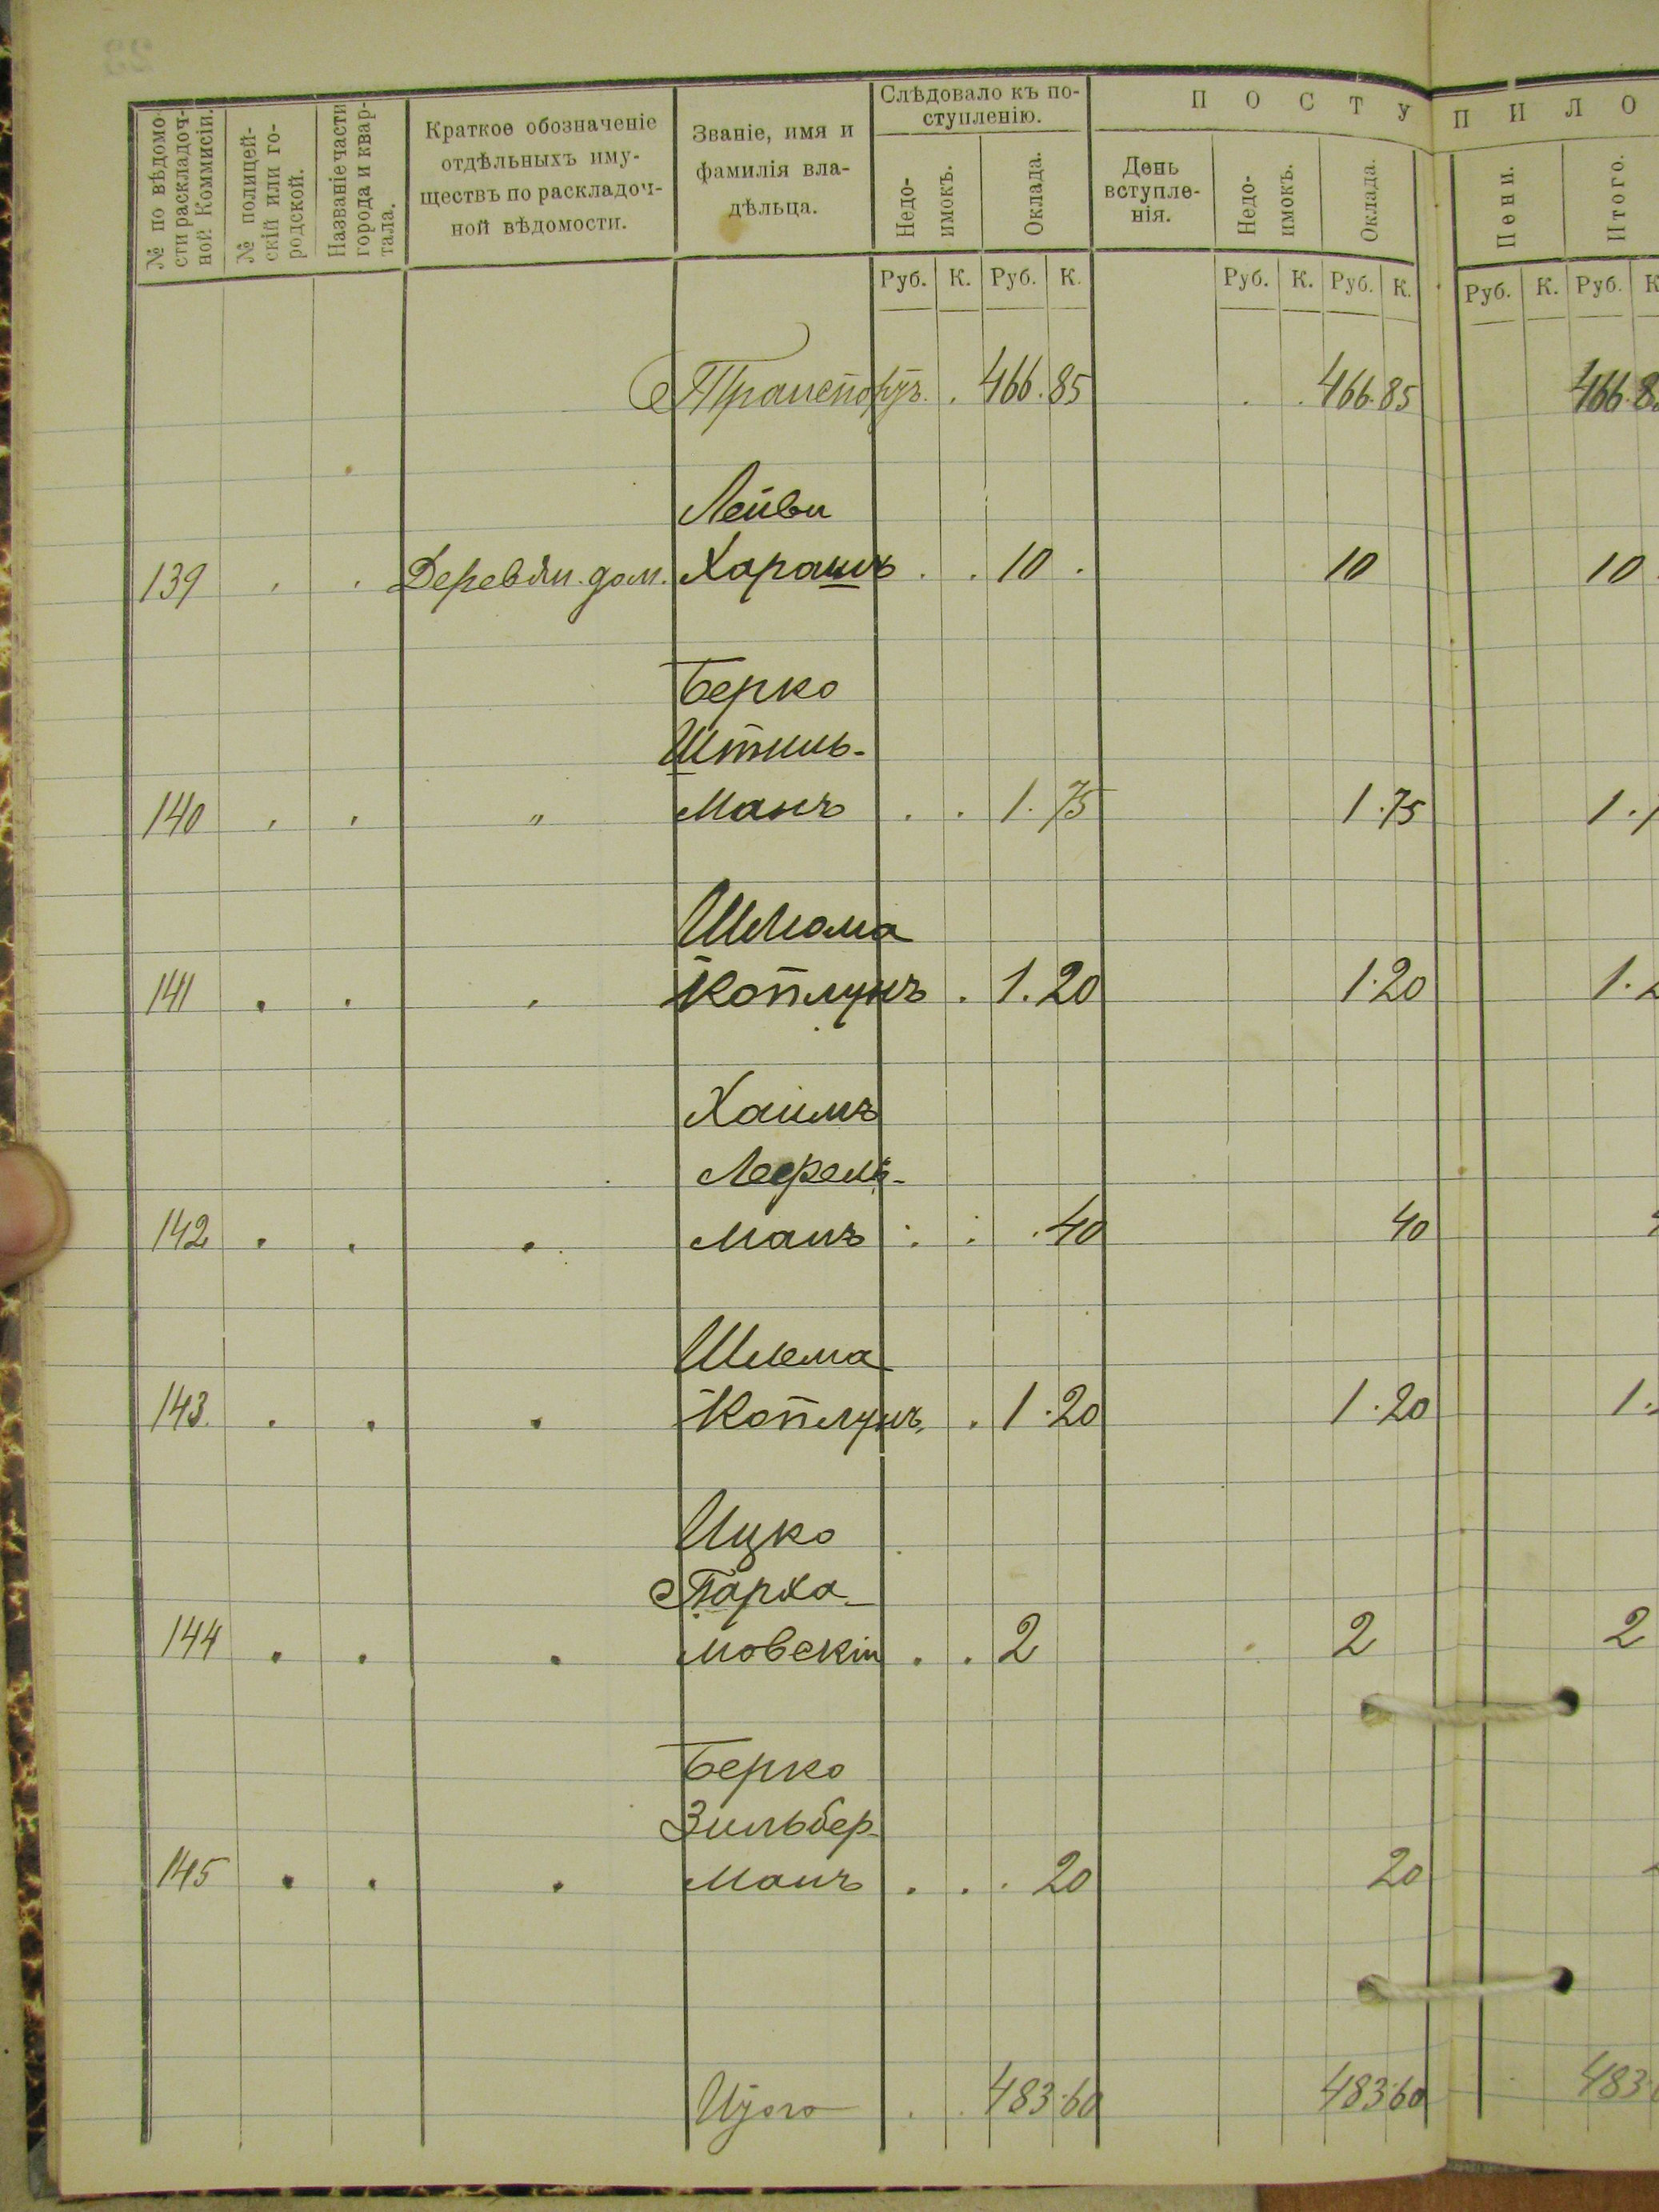 № по вѣдомо-
сти раскладоч-
ной Коммисіи.
№ полицей-
скій или го-
родской.
Названіе части
города и квар-
тала.
Краткое обозначеніе
отдѣльныхъ иму-
ществъ по раскладоч-
ной вѣдомости.
Званіе, имя и
фамилія вла-
дѣльца.
Слѣдовало къ по-
ступленію.
Недо-
имокъ.
Оклада.
ПОСТУПИЛО
День
вступле-
нія.
Недо-
имокъ.
Оклада.
Пени.
Итого.
Руб. К. Руб. К. Руб. К. Руб. К. Руб. К. Руб. К
Транспортъ . . 466.85 . . 466.85 466.8
Лейви
139 . . Деревян. дом. Харашъ . . 10 . 10 10
Берко
Штиль-
140 . . " манъ . . 1.75 1.75 1.
Шлёма
141 . . . Коплунъ . 1.20 1.20 1.2
Хаимъ
142 . . . манъ . . . 40 40
Шлема
143. . . . Коплунъ . 1.20 1.20 1.
Ицко
Парха-
144 . . . мовскій . . 2 2 2
Берко
Зильбер-
145 . . . манъ . . . 20 20
Итого . . 483.60 483.60 483.